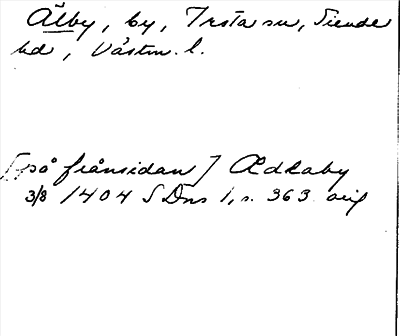 Älby, by, Irsta sn, Siende
hd, Västm. l.
[på frånsidan] Ædkaby
3/8 1404 SDns 1, s. 363 orig